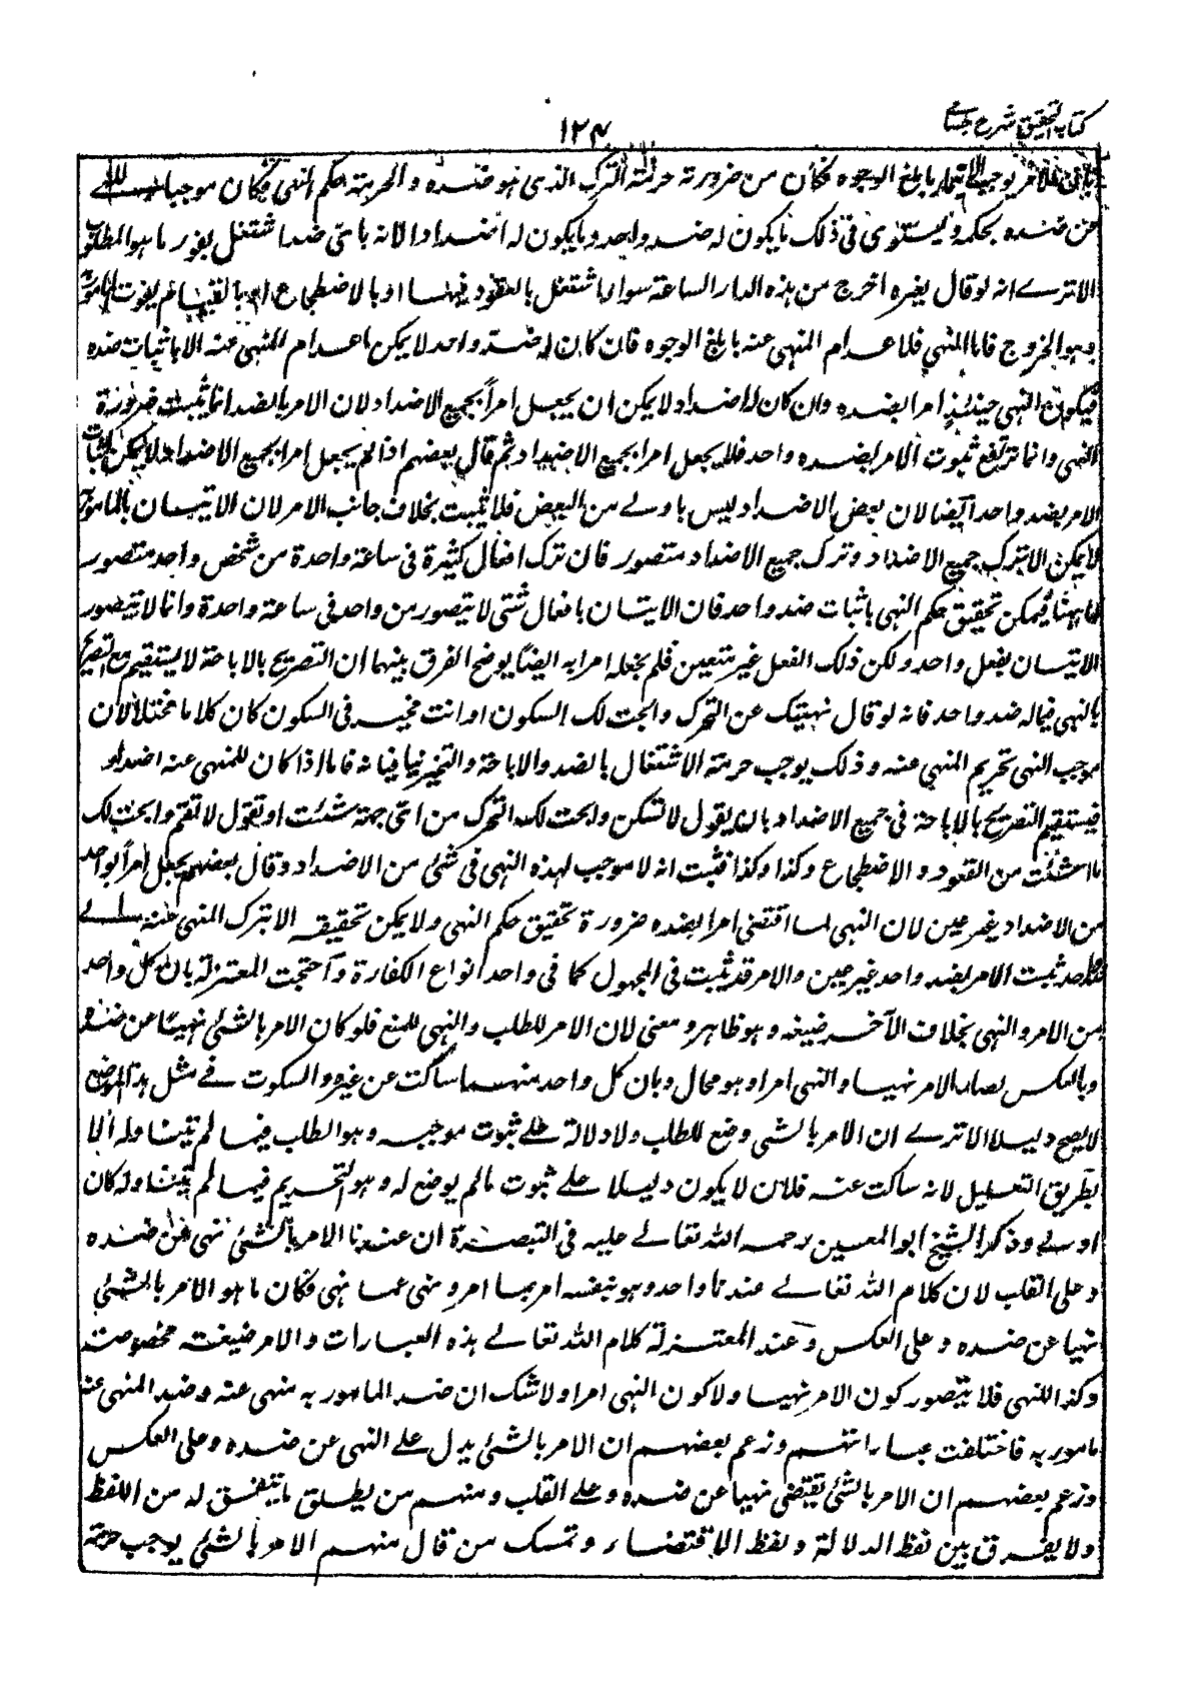 كتاب التحقيق شرح حسامي
١٢٤
فالامر يوجب الائتمار بابلغ الوجوه فكان من ضرورته حرمة الترك الذي هو ضده والحرمة حكم النهي فكان موجبا للنهي
عن ضده بحكمه ويستوي في ذلك ما يكون له ضد واحد وما يكون له اضداد لانه باي ضد اشتغل يفوت ما هو المطلوب
الا ترى انه لو قال لغيره اخرج من هذه الدار الساعة سواء اشتغل بالقعود فيها او بالاضطجاع او بالقيام يفوت المامور به
وهو الخروج فاما النهي فلاعدام المنهي عنه بابلغ الوجوه فان كان له ضد واحد لا يمكن اعدام المنهي عنه الا باثبات ضده
فيكون النهي حينئذ امرا بضده وان كان له اضداد لا يمكن ان يجعل امراً بجميع الاضداد لان الامر بالضد انما يثبت ضرورة
النهي وانما ترتفع ثبوت الامر بضده واحد فلا يجعل امرا بجميع الاضداد ثم قال بعضهم اذا لم يجعل امرا بجميع الاضداد فلا يمكن اثبات
الامر بضد واحد ايضا لان بعض الاضداد ليس باولے من البعض فلا يثبت بخلاف جانب الامر لان الاتيان بالمامور به
لا يمكن الا بترك جميع الاضداد وترك جميع الاضداد متصور فان ترك افعال كثيرة في ساعة واحدة من شخص واحد متصور
اما ههنا فيمكن تحقيق حكم النهي باثبات ضد واحد فان الاتيان بافعال شتى لا يتصور من واحد في ساعة واحدة وانما لا يتصور
الاتيان بفعل واحد ولكن ذلك الفعل غير متعين فلم يجعله امرا به ايضا يوضح الفرق بينهما ان التصريح بالاباحة لا يستقيم مع التصريح
بالنهي فيما له ضد واحد فانه لو قال نهيتك عن التحرك وابحت لك السكون او انت مخير في السكون كان كلاما مختلا لان
موجب النهي تحريم المنهي عنه وذلك يوجب حرمة الاشتغال بالضد والاباحة والتخير ينافيانه فاما اذا كان للمنهي عنه اضداد
فيستقيم التصريح بالاباحة في جميع الاضداد بان يقول لا تسكن وابحت لك التحرك من اي جهة شئت او تقول لا تقم وابحت لك
ما شئت من القعود والاضطجاع وكذا وكذا فثبت انه لا موجب لهذه النهي في شئ من الاضداد وقال بعضهم يجعل امراً بواحد
من الاضداد غير عين لان النهي لما اقتضى امرا بضده ضرورة تحقيق حكم النهي ولا يمكن تحقيقه الا بترك المنهي عنه الے
ضد واحد ثبت الامر بضد واحد غير عين والامر قد يثبت في المجهول كما في واحد انواع الكفارة وآحتجت المعتزلة بان كل واحد
من الامر والنهي بخلاف الآخر صيغة وهو ظاهر ومعنى لان الامر للطلب والنهي للمنع فلو كان الامر بالشئ نهيًا عن ضده
وبالعكس لصار الامر نهيا والنهي امرا وهو محال وبان كل واحد منهما ساكت عن غيره والسكوت في مثل هذا الموضع
لا يصح دليلا الا ترے ان الامر بالشئ وضع للطلب ولا دلالة علے ثبوت موجبه وهو الطلب فيما لم يتناوله الا
بطريق التعليل لانه ساكت عنه فلان لا يكون دليلا علے ثبوت مالم يوضع له وهو التحريم فيما لم يتناوله كان
اولے وذكر الشيخ ابو المعين رحمه الله تعالے عليه في التبصرة ان عندنا الامر بالشئ نهي عن ضده
وعلى القلب لان كلام الله تعالے عندنا واحد وهو بنفسه امر بما امر ونهي عما نهى فكان ما هو الامر بالشئ
نهيا عن ضده وعلى العكس وعند المعتزلة كلام الله تعالے هذه العبارات والامر صيغة مخصوصة
وكذا النهي فلا يتصور كون الامر نهيا ولا كون النهي امرا ولا شك ان ضد المامور به منهي عنه وضد المنهي عنه
مامور به فاختلفت عباراتهم وزعم بعضهم ان الامر بالشئ يدل علے النهي عن ضده وعلى العكس
وزعم بعضهم ان الامر بالشئ يقتضي نهيا عن ضده وعلے القلب ومنهم من يطلق ما يتفق له من اللفظ
ولا يفرق بين لفظ الدلالة ولفظ الاقتضاء وتمسك من قال منهم الامر بالشئ يوجب حرمة